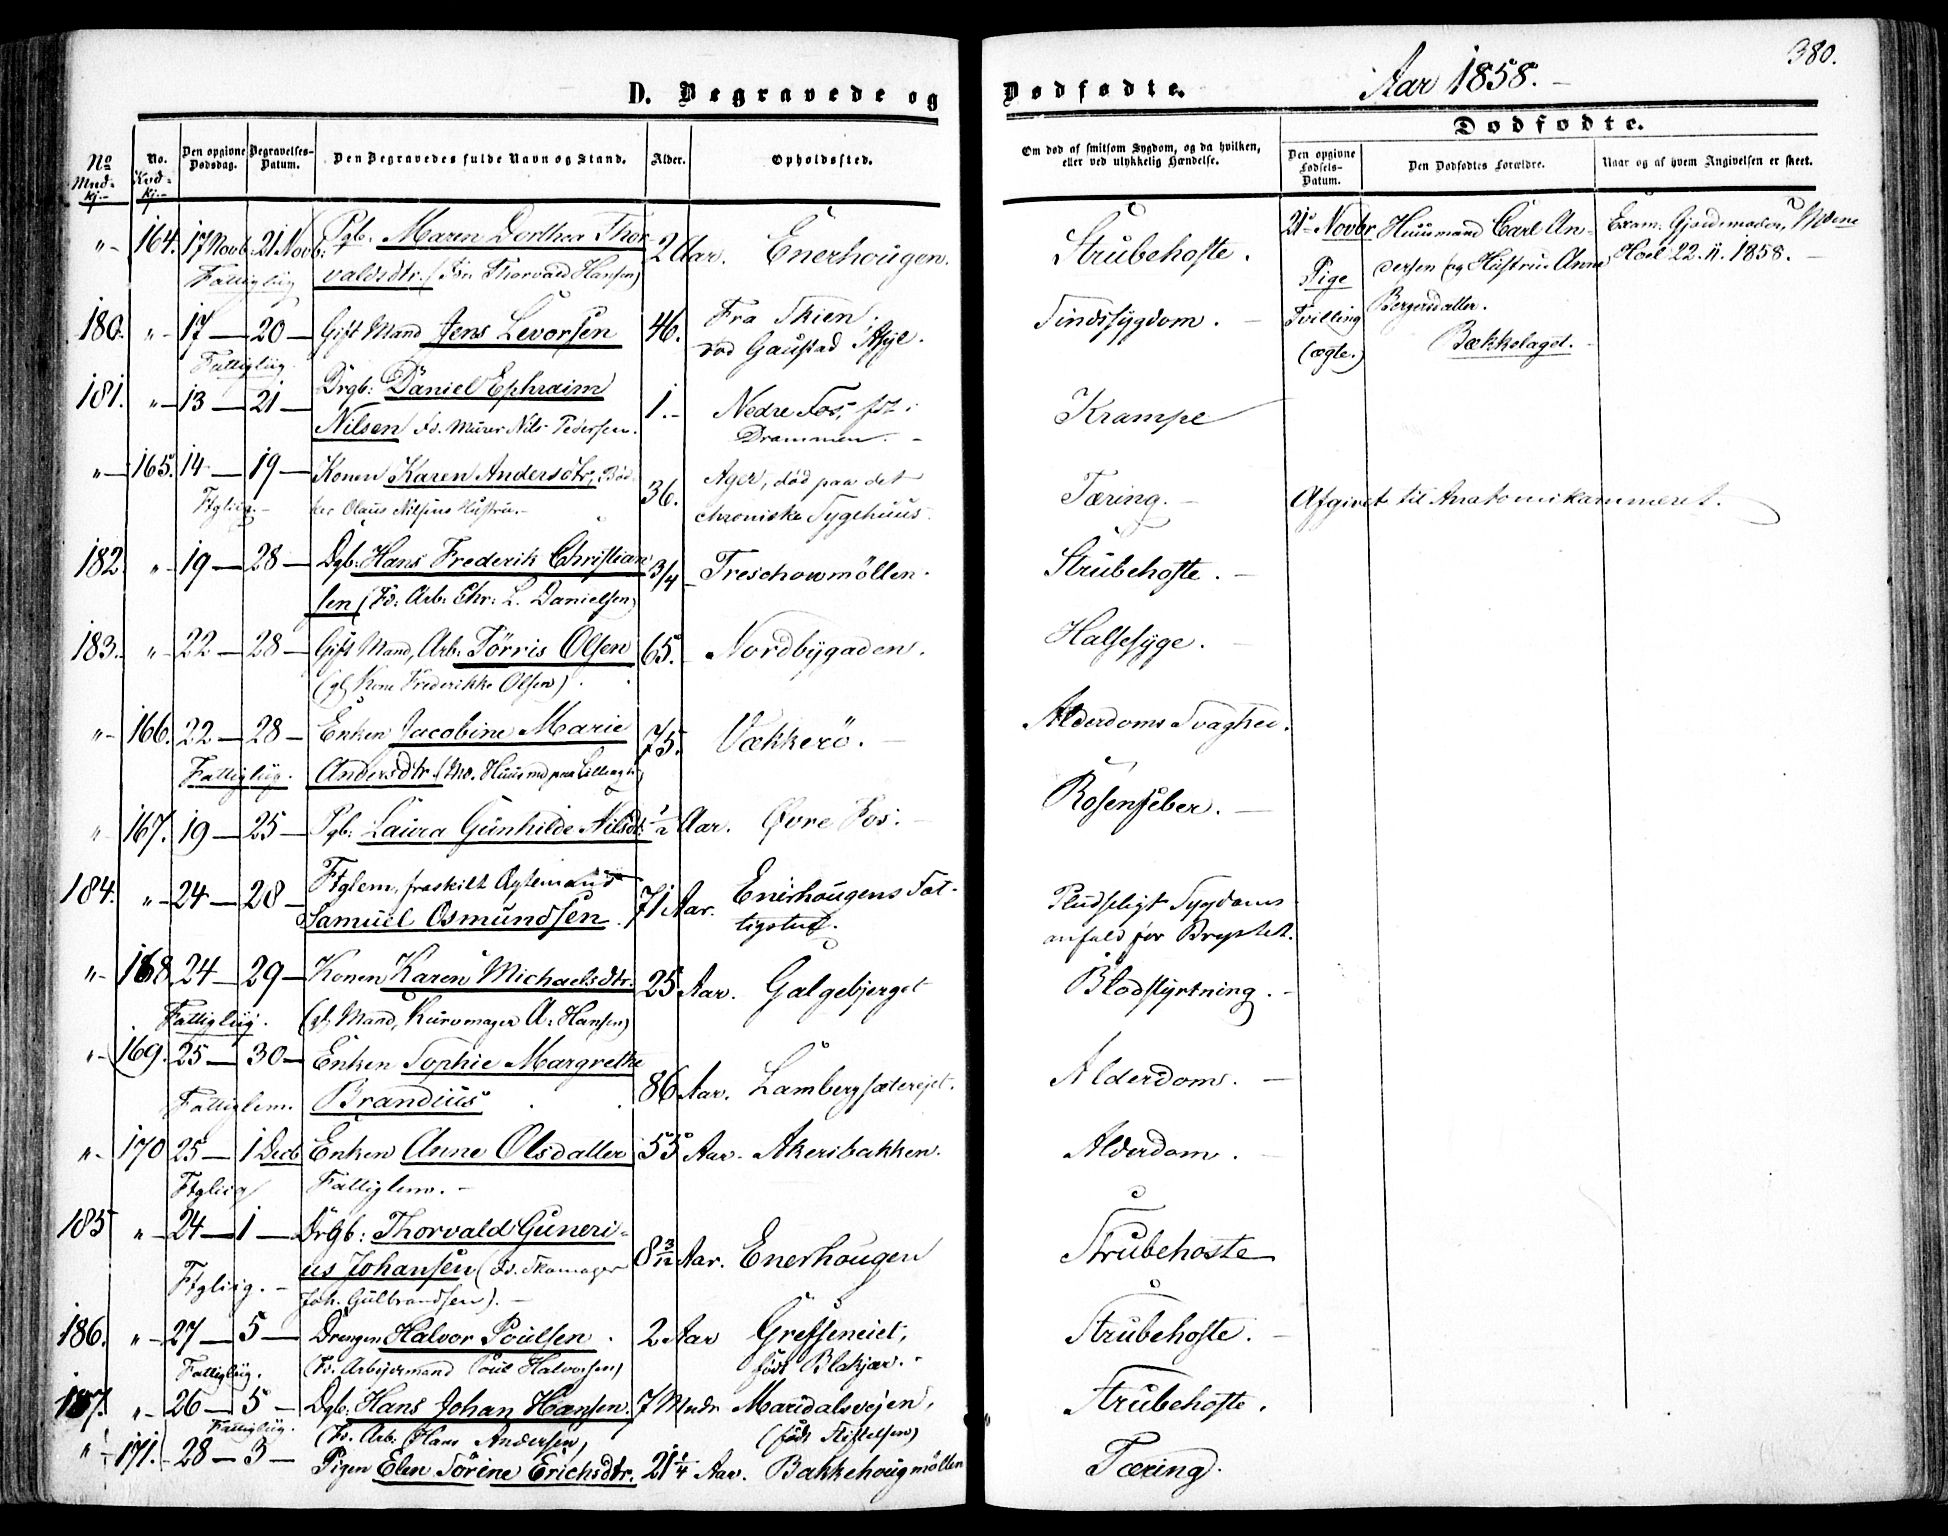 D. Begravede og Dødfødte.
Aar 1858.
380.
No Mnd-kj.-
No. Kvd-kj.-
Den opgivne Dødsdag.
Begravelses-Datum.
Den Begravedes fulde Navn og Stand.
Alder.
Opholdssted.
Om død af smitsom Sygdom, og da hvilken, eller ved ulykkelig Hændelse.
Dødfødte.
Den opgivne Fødsels-Datum.
Den Dødfødtes Forældre.
Naar og af hvem Angivelsen er skeet.
"- 164. 17 Novb. 21 Novb: Pgb. Maren Dorthea Thor- 2 Aar. Enerhougen. Strubehoste.
Fattigliig valdsdtr. (Thorvald Hansen)
21 Novbr Huusmand Carl An- Exam: Gjordemoder,
Pige dersen og Hustru Anne Hoel 22.11.1858.
Tvilling Bergersdatter.
(ægte.) Bækkelaget.
180. "- 17 — 20 — Gift Mand Jens Levorsen 46. Fra Skien. Sindssygdom.
Fattigliig. ved Gaustad Asyl.
181. "- 13 — 21 — Drgb: Daniel Ephraim 1.- Nedre Fos, fdt i Krampe
Nilsen Murer Nils Pedersen. Drammen.
"- 165. 14 — 19 — Konen Karen Andersdtr, Bød- 36. Ager, død paa det Tæring. Afgivet til Anatomikammeret.
Ftgliig.- ker Olaus Nilsens Hustru.- chroniske Sygehuus.
182 "- 19 — 28 — Dgb. Hans Frederik Christian- 3/4 Treschowmöllen. Strubehoste.
sen (Fd: Arb: Chr: L. Danielsen)
183. "- 22 — 28 — Gift Mand, Arb: Törris Olsen 65. Nordbygaden. Halsesyge.
(gl. Kone Frederikke Olsen)
"- 166. 22 — 28 — Enken Jacobine Marie 75. Vækkerö. Alderdoms Svaghed.
Fattigliig. Andersdtr.
"- 167. 19 — 25 — Pgb: Laura Gunhilde Nilsdtr: 1/2 Aar. Øvre Fos. Rosenfeber.
184. "- 24 — 28 — Ftglem, fraskilt Ægtemand 71 Aar. Enerhougens Fat- Pludseligt Sygdoms-
Samuel Osmundsen. tigstue. anfald for Brystet.
"- 168. 24 — 29 — Konen Karen Michaelsdtr. 25 Aar. Galgebjerget Blodstyrtning.
Fattigliig. (gl. Mand, Kurvmager A: Hansen)
"- 169. 25 — 30 — Enken Sophie Margrethe 86 Aar. Lambergsæterejet. Alderdom.
Fattiglem. Brandius
"- 170 25 — 1 Decb Enken Anne Olsdatter 55 Aar. Akersbakken. Alderdom.
Ftgliig Fattiglem.-
185 "- 24 — 1 — Drgb: Thorvald Guneri- 8 3/12 Aar. Enerhougen Strubehoste
Ftgliig.- us Johansen (Fd. Skomager
Joh. Gulbrandsen).-
186. "- 27 — 5 — Drengen Halvor Poulsen. 2 Aar Grefseneiet, Strubehoste.
Fattigliig. (Fd. Arbejdsmand Poul Halvorsen) født Blakjær.-
187. "- 26 — 5 — Dgb: Hans Johan Hansen. 7 Mndr Maridalsvejen, Strubehoste.
Fattigliig. (Fd. Arb. Hans Andersen) (født Stiftelsen)
"- 171. 28 — 3 — Pigen Elen Sörine Erichsdtr. 21 1/4 Aar. Bakkehougmöllen Tæring.